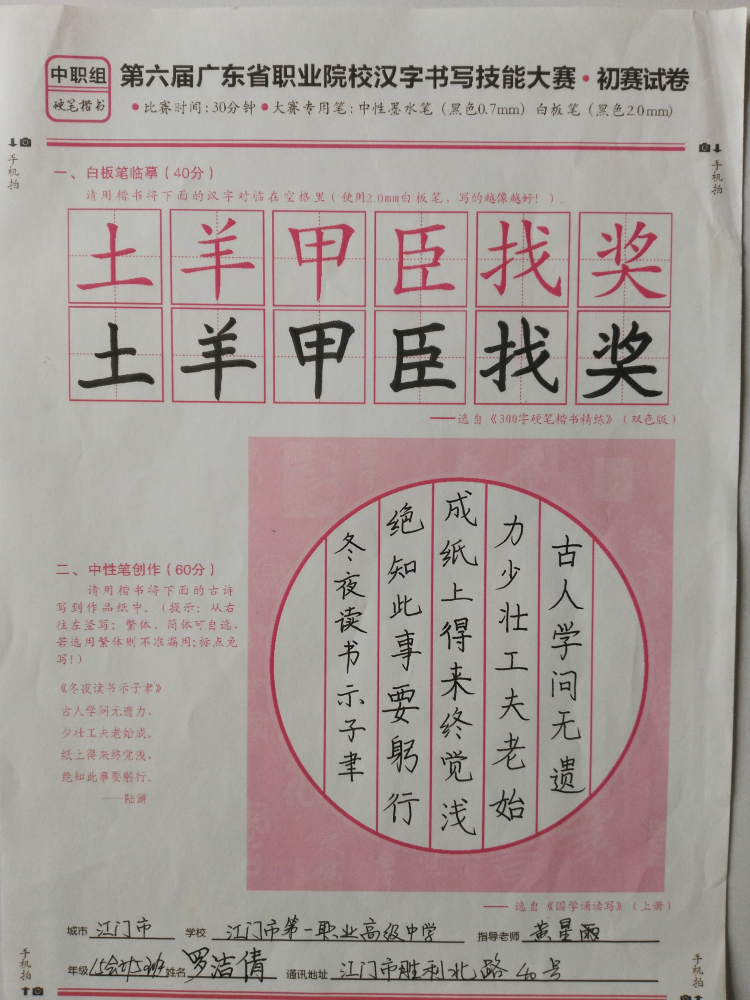 中职组
硬笔楷书
第六届广东省职业院校汉字书写技能大赛·初赛试卷
●比赛时间:30分钟●大赛专用笔:中性墨水笔（黑色0.7mm）白板笔（黑色2.0mm）
手机拍
手机拍
一、白板笔临摹（40分）
请用楷书将下面的汉字对临在空格里（使用2.0mm白板笔，写的越像越好！）。
土羊甲臣找奖
土羊甲臣找奖
——选自《300字硬笔楷书精练》（双色版）
古人学问无遗
力少壮工夫老始
成纸上得来终觉浅
绝知此事要躬行
冬夜读书示子聿
二、中性笔创作（60分）
请用楷书将下面的古诗
写到作品纸中。（提示：从右
往左竖写；繁体、简体可自选，
若选用繁体则不准漏用;标点免
写!）
《冬夜读书示子聿》
古人学问无遗力，
少壮工夫老始成。
纸上得来终觉浅，
绝知此事要躬行。
——陆游
——选自《国学诵读写》（上册）
城市 江门市 学校 江门市第一职业高级中学 指导老师 黄星雨
年级 15会计5班 姓名 罗洁倩 通讯地址 江门市胜利北路40号
手机拍
手机拍